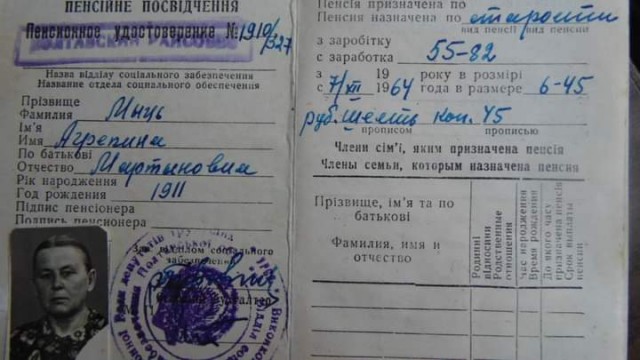 ПЕНСІЙНЕ ПОСВІДЧЕННЯ
Пенсионное удостоверение № 1910/327
ПОЛТАВСКИЙ РАЙСОБЕС
Назва відділу соціального забезпечення
Название отдела социального обеспечения
Прізвище
Фамилия Мнць
Ім'я
Имя Агрепина
По батькові
Отчество Мартыновна
Рік народження
Год рождения 1911
Підпис пенсіонера
Подпись пенсионера
Зав. відділом соціального
забезпечення
бухгалтер
Пенсія призначена по
Пенсия назначена по старости
вид пенсії вид пенсии
з заробітку
с заработка 55-82
з 19 року в розмірі
с 7/XII 1964 года в размере 6-45
руб. шесть коп. 45
прописом прописью
Члени сім'ї, яким призначена пенсія
Члены семьи, которым назначена пенсия
Прізвище, ім'я та по
батькові
Фамилия, имя и
отчество
Родинні
відносини
Родственные
отношения
Час народження
Время рождения
До якого часу
призначена пенсія
Срок выплаты
пенсии